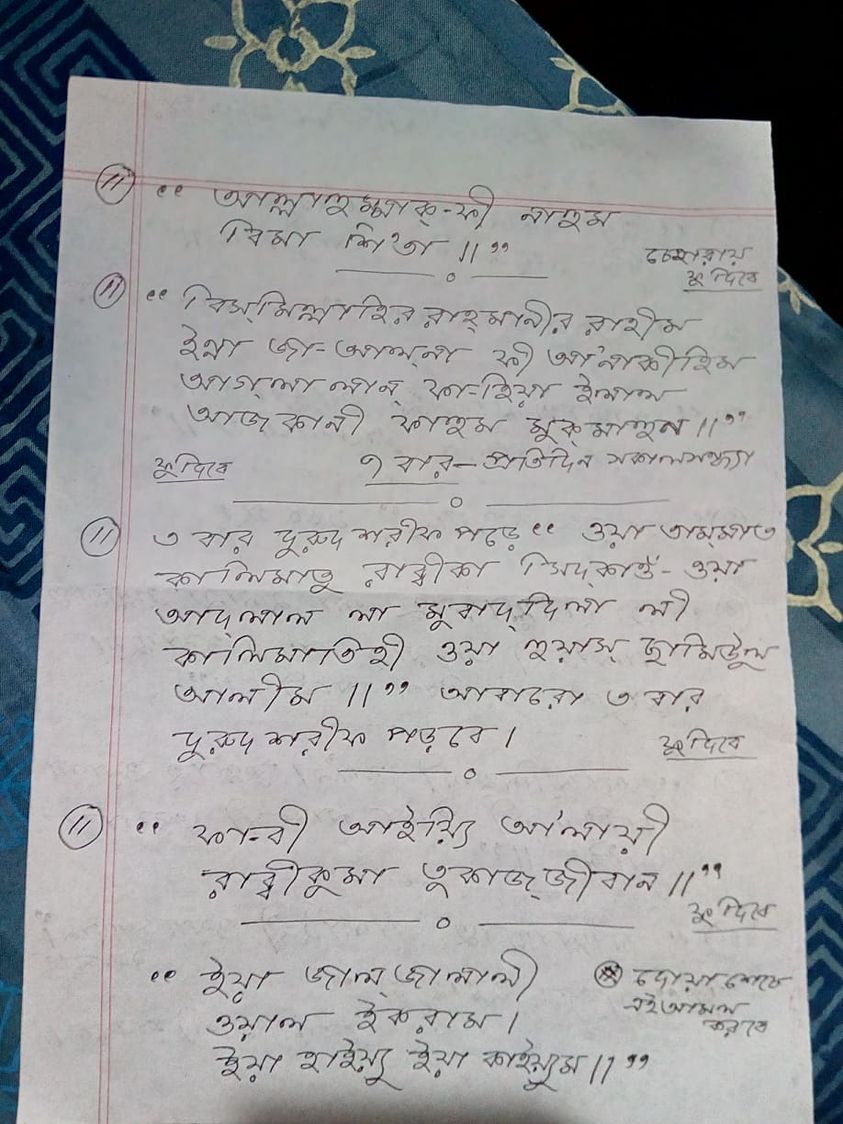 ॥ “ আল্লাহুম্মাক্-ফী নাহুম
বিমা শি'তা ॥”
চেহারায়
ফুঁ দিবে
॥ “ বিস্‌মিল্লাহির রাহ্‌মানীর রাহীম
ইন্না জা-আল্‌না ফী আ'নাকীহিম
আগ্‌লা লান্ ফা-হিয়া ইলাল
আজকানী ফাহুম মুক্‌মাহুন ॥”
ফুঁ দিবে ৭ বার – প্রতিদিন সকালসন্ধ্যা
॥ ৩ বার দুরুদ শরীফ পড়ে “ ওয়া তাম্‌মাত
কালিমাতু রাব্বীকা সিদ্‌কাওঁ- ওয়া
আদ্‌লাল লা মুবাদ্‌দিলা লী
কালিমাতিহী ওয়া হুয়াস্ ছামিউল
আলীম ॥” আবারো ৩ বার
দুরুদ শরীফ পড়বে।
ফুঁ দিবে
॥ “ ফা-বী আইয়্যি আ'লায়ী
রাব্বীকুমা তুকাজ্‌জীবান ॥”
ফুঁ দিবে
“ ইয়া জাল্‌জালালী
ওয়াল ইকরাম।
ইয়া হাইয়্যু ইয়া কাইয়্যুম ॥”
দোয়া শেষে
এই আমল
করবে